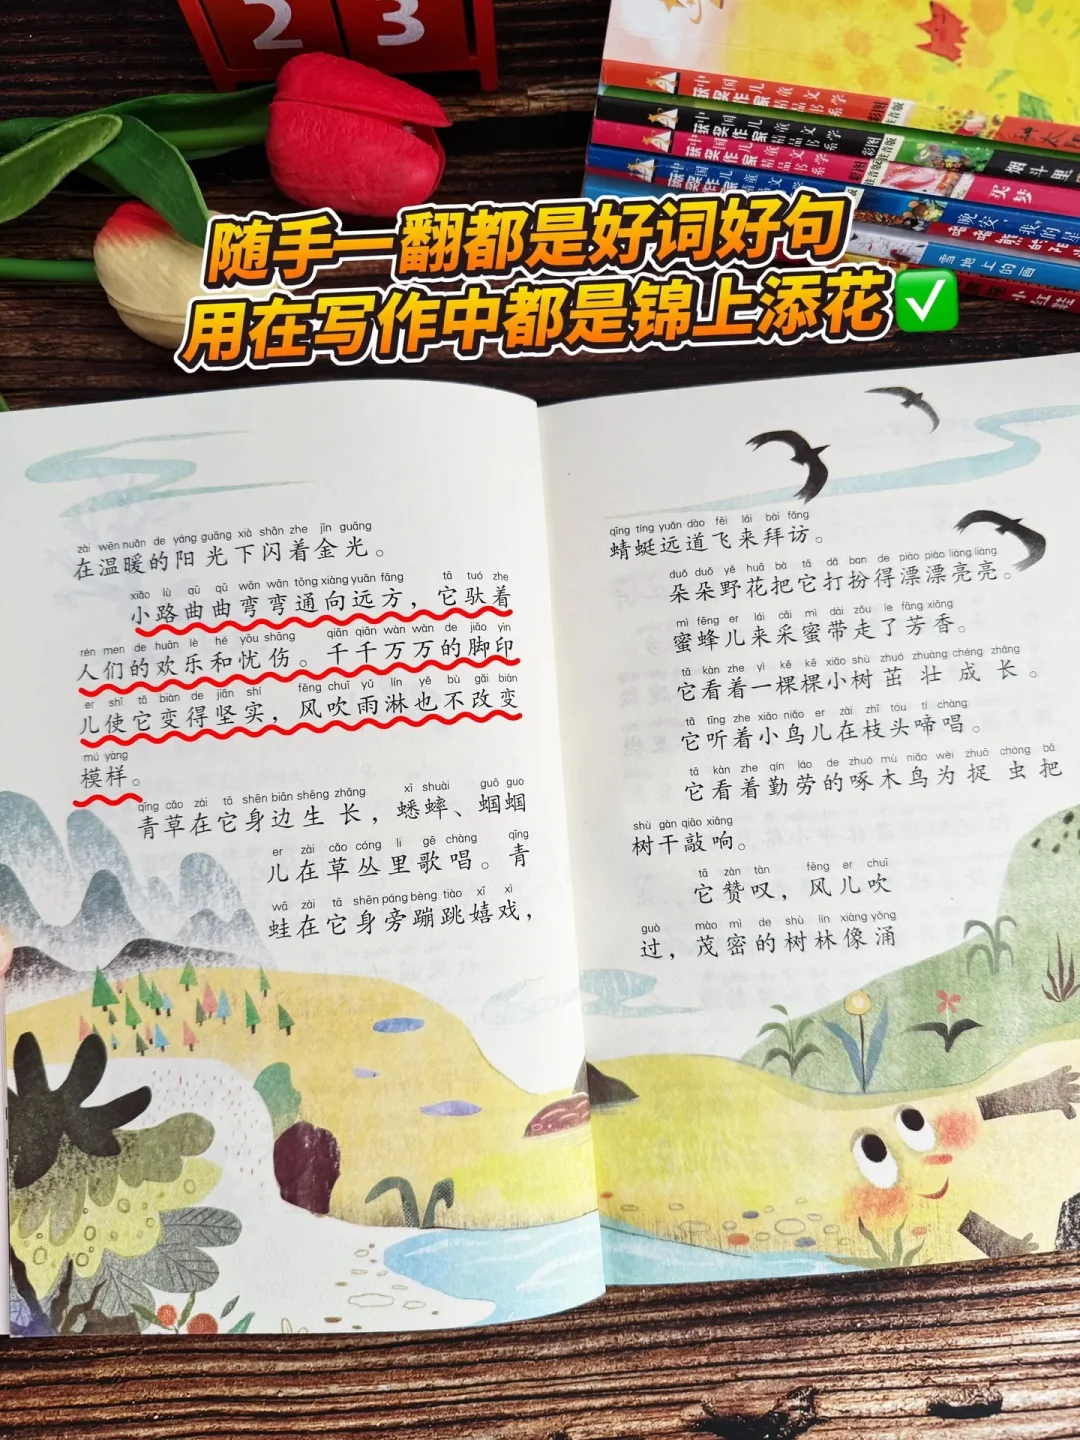 23
获中国儿童文
奖作家精品书系学
彩图
注音版
获中国儿童文
奖作家精品书系学
彩图
注音版
获中国儿童文
奖作家精品书系学
烟斗里
买梦
晚安，我的星
喵喵熊的
雪地上的画
小红鞋
随手一翻都是好词好句
用在写作中都是锦上添花
zài wēn nuǎn de yáng guāng xià shǎn zhe jīn guāng
在温暖的阳光下闪着金光。
xiǎo lù qū qū wān wān tōng xiàng yuǎn fāng tā tuó zhe
小路曲曲弯弯通向远方，它驮着
rén men de huān lè hé yōu shāng qiān qiān wàn wàn de jiǎo yìn
人们的欢乐和忧伤。千千万万的脚印
er shǐ tā biàn de jiān shí fēng chuī yǔ lín yě bù gǎi biàn
儿使它变得坚实，风吹雨淋也不改变
mú yàng
模样。
qīng cǎo zài tā shēn biān shēng zhǎng xī shuài guō guo
青草在它身边生长，蟋蟀、蝈蝈
er zài cǎo cóng li gē chàng qīng
儿在草丛里歌唱。青
wā zài tā shēn páng bèng tiào xī xì
蛙在它身旁蹦跳嬉戏，
qīng tíng yuǎn dào fēi lái bài fǎng
蜻蜓远道飞来拜访。
duǒ duǒ yě huā bǎ tā dǎ ban de piào piào liàng liàng
朵朵野花把它打扮得漂漂亮亮。
mì fēng er lái cǎi mì dài zǒu le fāng xiāng
蜜蜂儿来采蜜带走了芳香。
tā kàn zhe yì kē kē xiǎo shù zhuó zhuàng chéng zhǎng
它看着一棵棵小树茁壮成长。
tā tīng zhe xiǎo niǎo er zài zhī tóu tí chàng
它听着小鸟儿在枝头啼唱。
tā kàn zhe qín láo de zhuó mù niǎo wèi zhuō chóng bǎ
它看着勤劳的啄木鸟为捉虫把
shù gàn qiāo xiǎng
树干敲响。
tā zàn tàn fēng er chuī
它赞叹，风儿吹
guò mào mì de shù lín xiàng yǒng
过，茂密的树林像涌